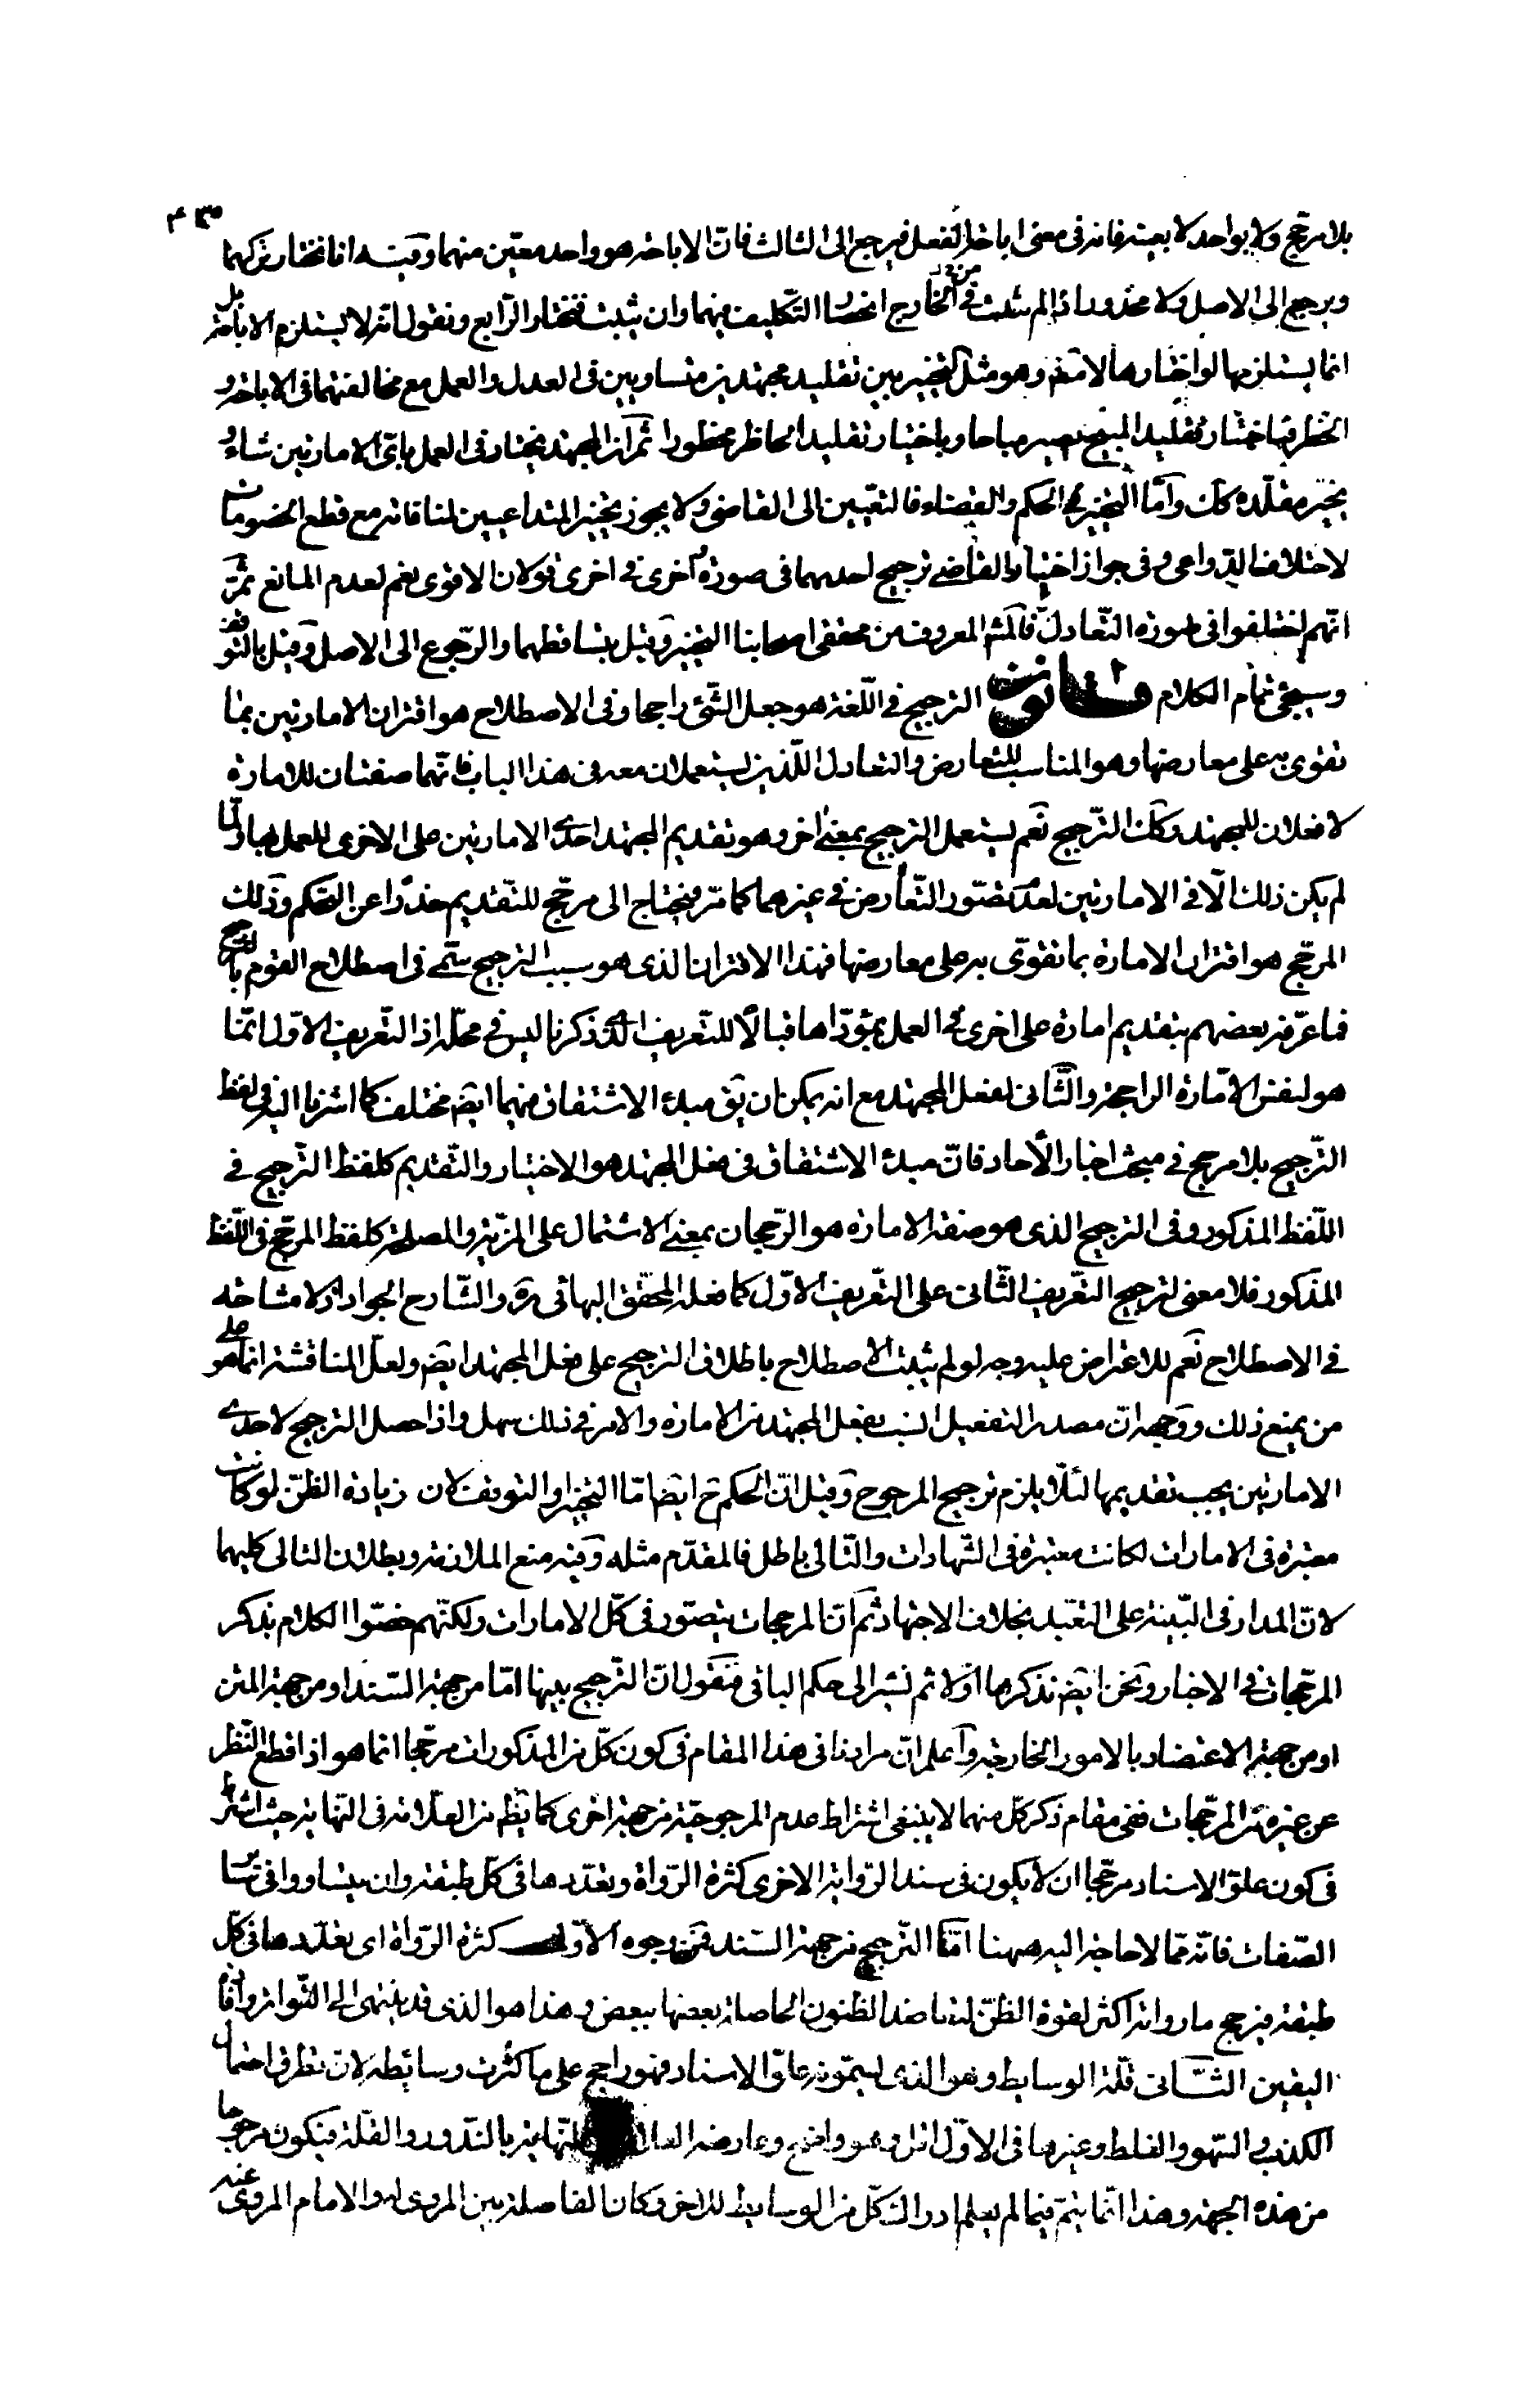 بلا مرجح ولا بواحد لا بعينه فانه فى معنى اباحة الفعل فيرجع الى الثالث فان الاباحة هو واحد معين منهما وفيه انا نختار تركهما
ويرجع الى الاصل ولا محذور اذ لم يثبت من دليل فى الخارج انحصار التكليف فيهما وان يثبت فنختار الرابع ونقول انه لا يستلزم الاباحة بل
انما يستلزمها لو اختارها لا مطم وهو مثل التخيير بين تقليد مجتهدين متساويين فى العدل والعمل مع مخالفتهما فى الاباحة و
الحظر فباختيار تقليد المبيح يصير مباحا وباختيار تقليد الحاظر محظورا ثم ان المجتهد يختار فى العمل باى الامارتين شاء و
يخير مقلده كك وأما التخيير فى الحكم والقضاء فالتعيين الى القاضى ولا يجوز تخيير المتداعيين لمنافاته مع قطع الخصومات
لاختلاف الدواعى وفى جواز اختيار القاضى ترجيح احدهما فى صورة واخرى فى اخرى قولان الاقوى نعم لعدم المانع ثم
انهم اختلفوا فى صورة التعادل فالمشه المعروف من محققى اصحابنا التخيير وقيل بتساقطهما والرجوع الى الاصل وقيل بالتوقف
وسيجئ تمام الكلام قانون الترجيح فى اللغة هو جعل الشئ راجحا وفى الاصطلاح هو اقتران الامارتين بما
تقوى به على معارضها وهو المناسب للتعارض والتعادل اللذين يستعملان معه فى هذا الباب فانهما صفتان للامارة
لا فعلان للمجتهد وكك الترجيح نعم يستعمل الترجيح بمعنى اخر وهو تقديم المجتهد احدى الامارتين على الاخرى للعمل بها ولما
لم يكن ذلك الا فى الامارتين لعدم تصور التعارض فى غيرهما كما مر فيحتاج الى مرجح للتقديم حذرا عن التحكم وذلك
المرجح هو اقتران الامارة بما تقوى به على معارضها فهذا الاقتران الذى هو سبب الترجيح سمى فى اصطلاح القوم بالترجيح
فما عرفه بعضهم بتقديم امارة على اخرى فى العمل بمؤداها قبالا للتعريف الذى ذكرنا ليس فى محله اذ التعريف الاول انما
هو لنفس الامارة الراجحة والثانى لفعل المجتهد مع انه يمكن ان يق مبدء الاشتقاق فيهما ايض مختلف كما اشرنا اليه فى لفظ
الترجيح بلا مرجح فى مبحث اخبار الآحاد فان مبدء الاشتقاق فى فعل المجتهد هو الاختيار والتقديم كلفظ الترجيح فى
اللفظ المذكور وفى الترجيح الذى هو صفة الامارة هو الرجحان بمعنى الاشتمال على المزية والمصلحة كلفظ المرجح فى اللفظ
المذكور فلا معنى لترجيح التعريف الثانى على التعريف الاول كما فعله المحقق البهائى ره والشارح الجواد اذ لا مشاحة
فى الاصطلاح نعم للاعتراض عليه وجه لو لم يثبت الاصطلاح باطلاق الترجيح على فعل المجتهد ايض ولعل المناقشة انما هو على
من يمنع ذلك ووجهه ان مصدر التفعيل انسب بفعل المجتهد من الامارة والامر فى ذلك سهل واذا حصل الترجيح لاحدى
الامارتين يجب تقديمها لئلا يلزم ترجيح المرجوح وقيل ان الحكم ح ايضا اما التخيير او التوقف لان زيادة الظن لو كانت
معتبرة فى الامارات لكانت معتبرة فى الشهادات والتالى باطل فالمقدم مثله وفيه منع الملازمة وبطلان التالى كليهما
لان المدار فى البينة على التعبد بخلاف الاجتهاد ثم ان المرجحات يتصور فى كل الامارات ولكنهم خصوا الكلام بذكر
المرجحات فى الاخبار ونحن ايض نذكرها اولا ثم نشير الى حكم الباقى فنقول ان الترجيح بينها اما من جهة السند او من جهة المتن
او من جهة الاعتضاد بالامور الخارجية واعلم ان مرادنا فى هذا المقام فى كون كل من المذكورات مرجحا انما هو اذا قطع النظر
عن غيره من المرجحات ففى مقام ذكر كل منهما لا ينبغى اشتراط عدم المرجوحية من جهة اخرى كما يظم من العلامة فى النهاية حيث اشترط
فى كون علو الاسناد مرجحا ان لا يكون فى سند الرواية الاخرى كثرة الرواة وتعددها فى كل طبقة وان يتساووا فى سائر
الصفات فانه مما لا حاجة اليه ههنا اما الترجيح من جهة السند فمن وجوه الاول كثرة الرواة اى تعددها فى كل
طبقة فيرجح ما رواته اكثر لقوة الظن لتعاضد الظنون الحاصلة بعضها ببعض وهذا هو الذى قد ينتهى الى التواتر وافادة
اليقين الثانى قلة الوسايط وهو الذى يسمونه علو الاسناد فهو راجح على ما كثرت وسائطه لان تطرق احتمال
الكذب والسهو والغلط وغيرها فى الاول اقل وهو واضح وعارضه العلامة النهاية بالندور والقلة فيكون مرجوحا
من هذه الجهة وهذا انما يتم فيما لم يعلم ادراك كل من الوسايط للاخر وكان الفاصلة بين المروى له والامام المروى عنه